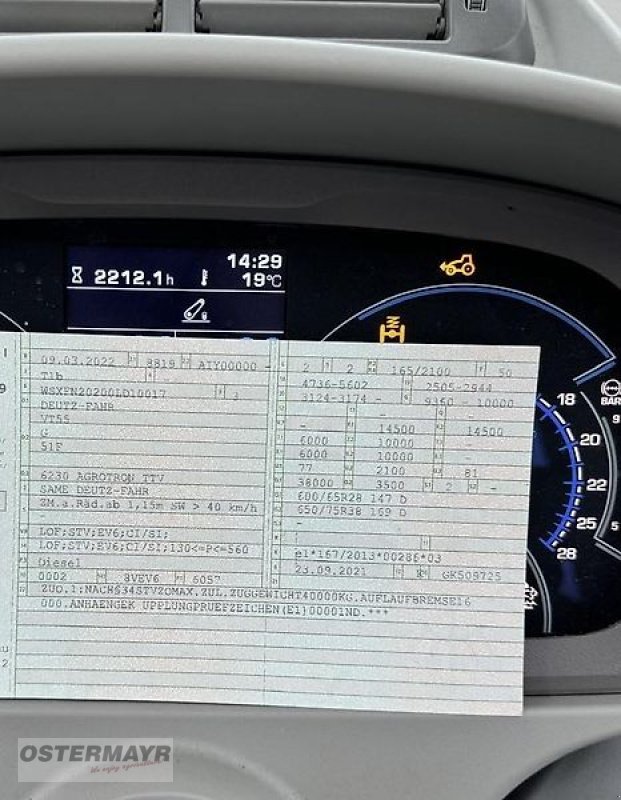 14:29
2212.1h 19°C
09.03.2022 8819 AIY00000 -
T1b
WSXFN20200LD10017 3
DEUTZ-FAHR
VT55
G
51F
6230 AGROTRON TTV
SAME DEUTZ-FAHR
ZM.a.Räd.ab 1,15m SW > 40 km/h
LOF;STV;EV6;CI/SI;
LOF;STV;EV6;CI/SI;130<=P<=560
Diesel
0002 3VEV6 6057
2 2 165/2100 50
4736-5602 2505-2944
3124-3174 - 9360 - 10000
- 14500 14500
6000 10000 -
6000 10000 -
77 2100 81
38000 3500 2 -
600/65R28 147 D
650/75R38 169 D
-
-
e1*167/2013*00286*03
23.09.2021 GK509725
ZUO.1:NACH§34STVZOMAX.ZUL.ZUGGEWICHT40000KG.AUFLAUFBREMSE16
000.ANHAENGEK UPPLUNGPRUEFZEICHEN(E1)00001ND.***
BAR
18
20
22
25
28
9
5
OSTERMAYR
We enjoy agriculture